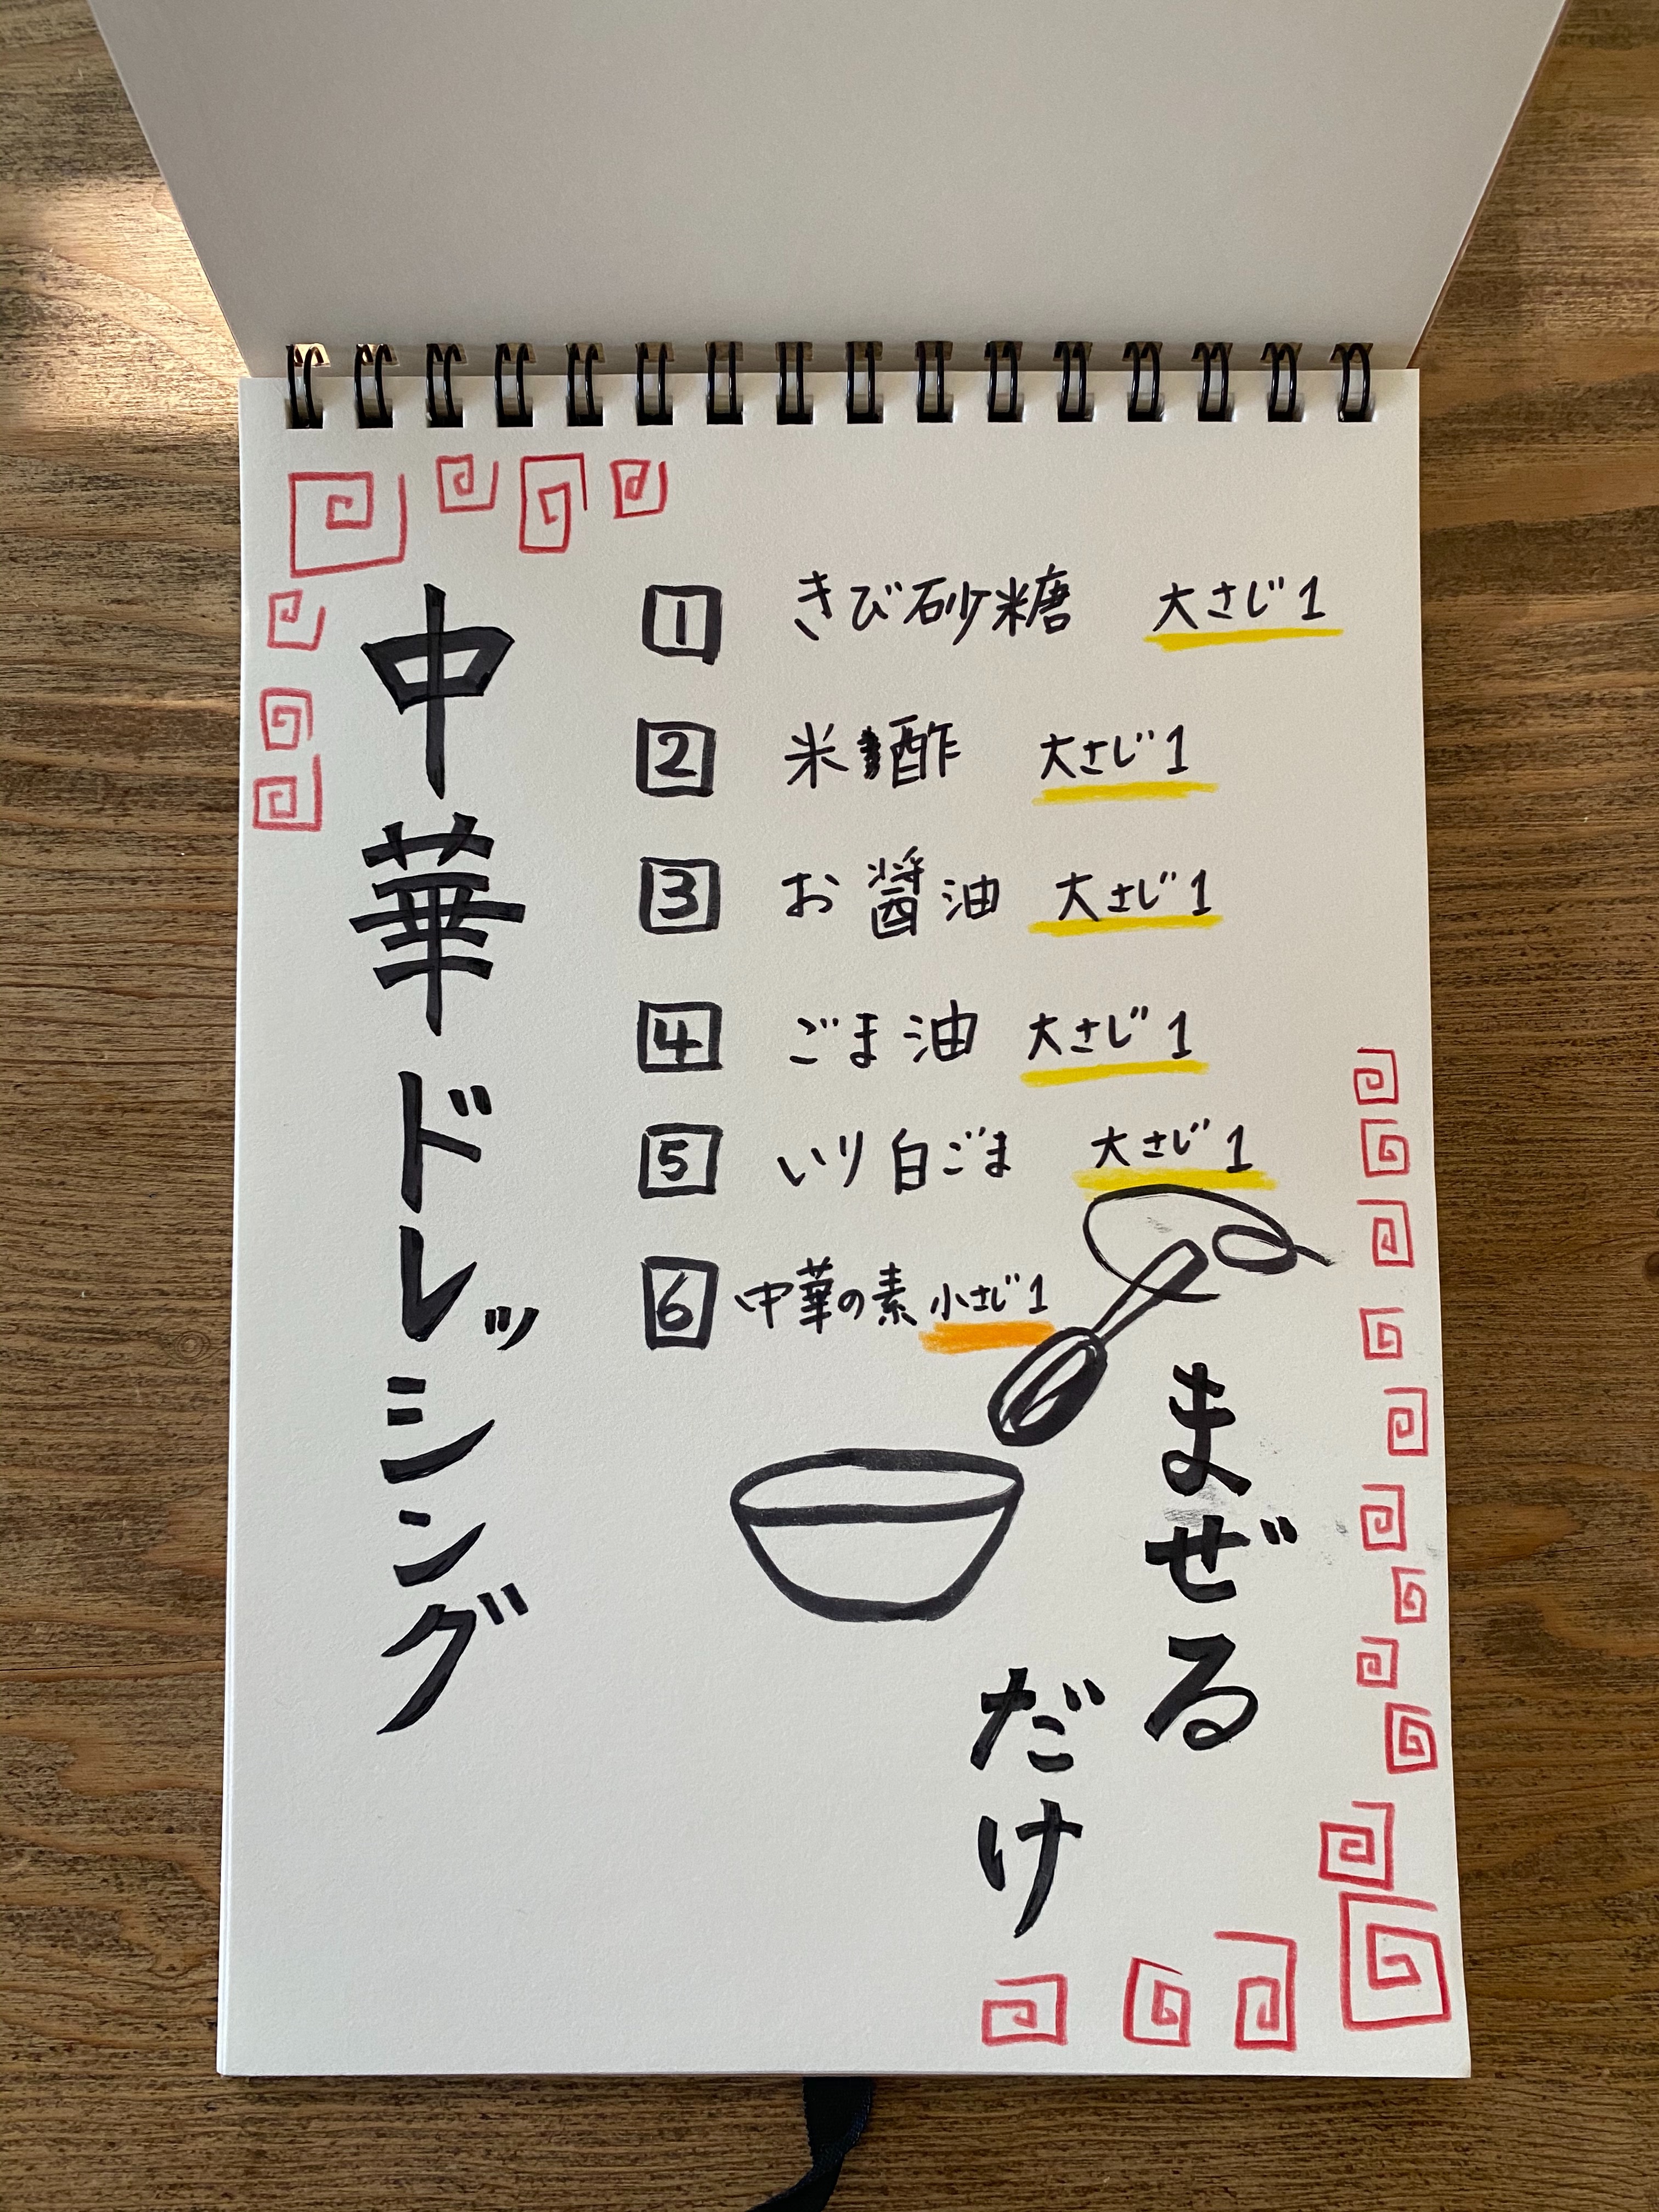 中華ドレッシング
1 きび砂糖 大さじ1
2 米酢 大さじ1
3 お醤油 大さじ1
4 ごま油 大さじ1
5 いり白ごま 大さじ1
6 中華の素 小さじ1
まぜる
だけ